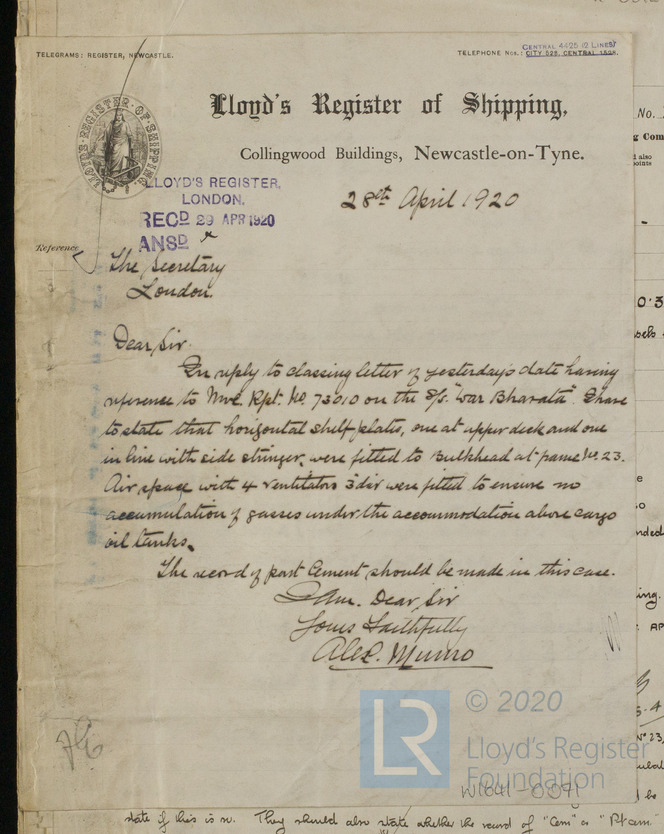 TELEGRAMS: REGISTER, NEWCASTLE.
TELEPHONE Nos.: CITY 528, CENTRAL 1528.
CENTRAL 4425 (2 LINES)
LLOYD'S REGISTER OF SHIPPING.
Lloyd's Register of Shipping,
Collingwood Buildings, Newcastle-on-Tyne.
LLOYD'S REGISTER,
LONDON.
RECD 29 APR 1920
ANSD
28th April 1920
Reference
The Secretary
London.
Dear Sir.
In reply to classing letter of yesterday's date having
reference to Nwc. Rpt. No. 73010 on the S/S. "War Bharata". I have
to state that horizontal shelf plates, one at upper deck and one
in line with side stringer, were fitted to Bulkhead at frame No. 23.
Air space with 4 ventilators 3" dia were fitted to ensure no
accumulation of gasses under the accommodation above cargo
oil tanks.
The record of part Cement should be made in this case.
I Am. Dear Sir
Yours Faithfully
Alex. Munro
© 2020
LR
Lloyd's Register
Foundation
W1641-0091
state if this is so. They should also state whether the record of "Cem" or "Pt cem."